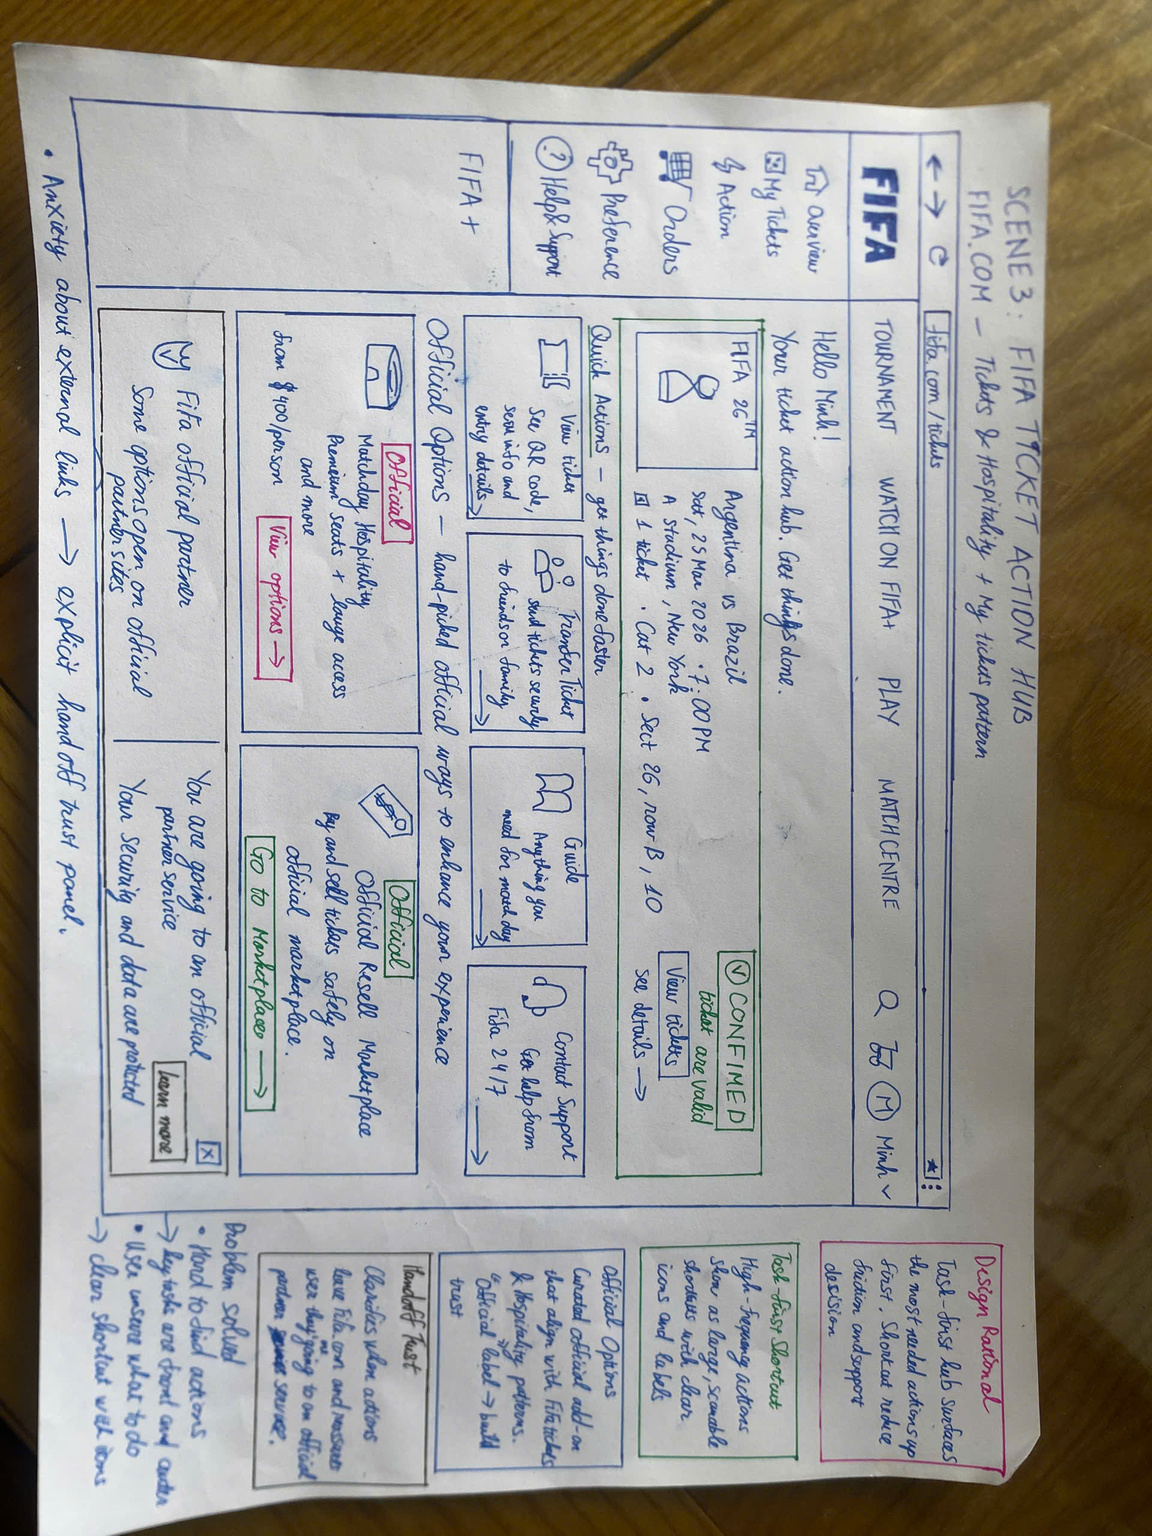 SCENE 3: FIFA TICKET ACTION HUB
FIFA.COM – Tickets & Hospitality + My tickets pattern
fifa.com/tickets
FIFA
TOURNAMENT WATCH ON FIFA+ PLAY MATCH CENTRE M Minh
Overview
My Tickets
Action
Orders
Preference
Help & Support
FIFA +
Hello Minh!
Your ticket action hub. Get things done.
FIFA 26™
Argentina vs Brazil
Sat, 25 Mar 2026 • 7:00 PM
A Stadium, New York
1 ticket • Cat 2 • Sect 26, row B, 10
CONFIMED
ticket are valid
View tickets
see details →
Quick Actions – get things done faster
View ticket
See QR code,
seat info and
entry details
Transfer Ticket
send tickets securely
to friends or family
Guide
Anything you
need for match day
Contact Support
Get help from
Fifa 24/7
Official Options – hand-picked official ways to enhance your experience
Official
Matchday Hospitality
Premium seats + lounge access
and more
from $400/person
View options →
Official
Official Resell Marketplace
By and sell tickets safely on
official marketplace.
Go to Marketplaces →
Fifa official partner
Some options open on official
partner sites
You are going to an official
partner service
Your security and data are protected
Learn more
x
• Anxiety about external links → explicit handoff trust panel.
Design Rational
Task-first hub surfaces
the most needed actions up
first. Shortcut reduce
friction and support
decision
Task-first Shortcut
High-frequency actions
show as large, scannable
shortcuts with clear
icons and labels
Official Options
Curated official add-on
that align with Fifa tickets
& Hospitality patterns.
"Official" label → build
trust
Handoff Trust
Clarifies when actions
leave Fifa.com and reassures
user they're going to an official
partner service.
Problem solved
• Hard to find actions
→ key tasks are front and center
• User unsure what to do
→ clear shortcut with icons